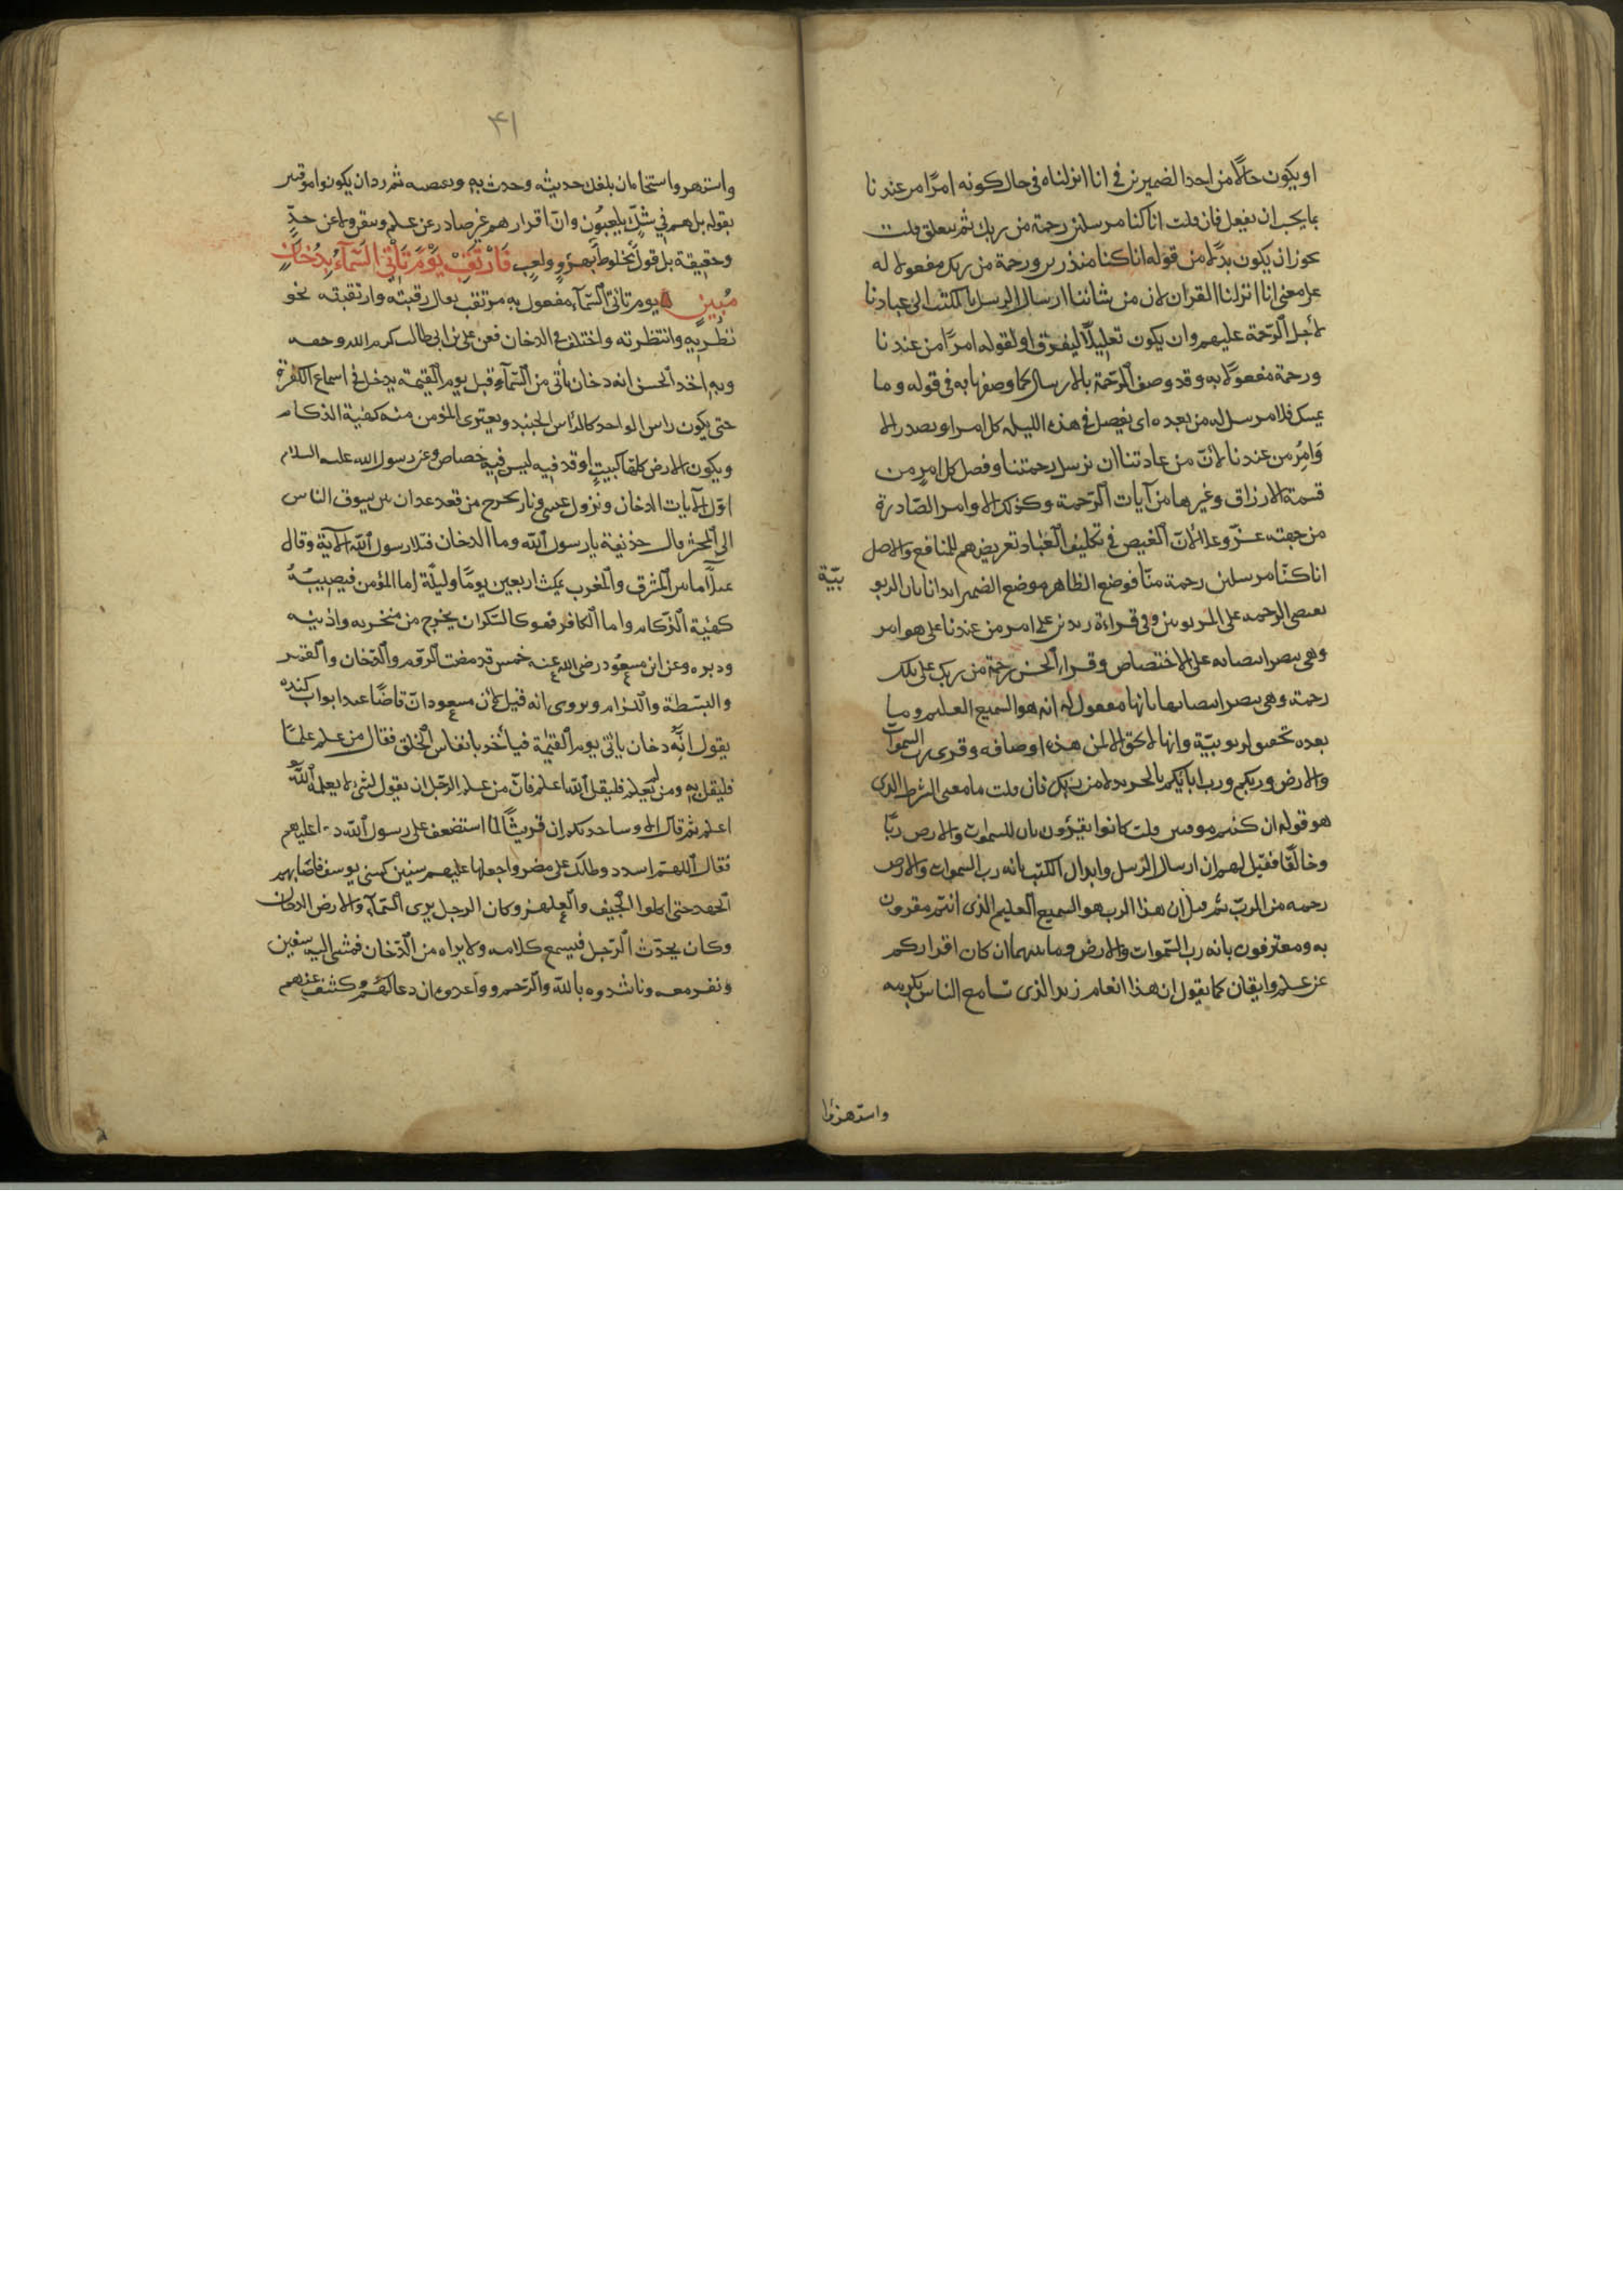 او يكون حالا من احد الضميرين في انا انزلناه في حال كونه امرًا من عندنا
بما يجب ان يفعل فان قلت انا كنا مرسلين رحمة من ربك ثم يتعلق قلت
يجوز ان يكون بدلا من قوله انا كنا منذرين ورحمة من ربك مفعولا له
على معنى انا انزلنا القران لان من شاننا ارسال الرسل بالكتب الى عبادنا
لأجل الرّحمة عليهم وان يكون تعليلًا ليفرق او لقوله امرًا من عندنا
ورحمة مفعولا به وقد وصف الرّحمة بالارسال كما وصفها به في قوله وما
يمسك فلا مرسل له من بعده اى يفصل في هذه الليله كل امر او تصدر الا
وَامِر من عندنا لانّ من عادتنا ان نرسل رحمتنا وفصل كل امرٍ من
قسمة الارزاق وغيرها من آيات الرّحمة وكذلك الاوامر الصّادرة
من جهته عزّ وعلا لانّ الغرض في تكليف العباد تعريضهم للمنافع والاصل
انا كنّا مرسلين رحمة منّا فوضع الظاهر موضع الضمير ايذانا بان الربو
بيّة
تقتضي الرحمه على المربوبين وفي قراءة زيد بن على امر من عندنا على هو امر
وهي تنصر انتصابه على الاختصاص وقراءة الحسن رحمة من ربك على تلك
رحمة وهي تنصر انتصابها بانها مفعول له انه هو السّميع العليم وما
بعده تحقيق لربوبيّة وانها لا تحق الا لمن هذه اوصافه وقرى رب السّموات
والارض وربكم ورب ابائكم بالجر بدلا من ربك فان قلت ما معنى الشرط الذى
هو قوله ان كنتم موقنين قلت كانوا يقرّون بان للسموات والارض ربّا
وخالقا فقيل لهم ان ارسال الرّسل وانزال الكتب بانه رب السموات والارض
رحمه من الربّ ثم قيل ان هذا الرب هو السميع العليم الذى انتم مقرون
به ومعترفون بانه رب السّموات والارض وما بينهما ان كان اقراركم
عن علم وايقان كما يقول ان هذا انعام زيد الذى تسامع الناس بكرمه
واستهزؤا
٤١
واستهروا سنحا مان بلغك حديثه وحدث به وبقصه ثم رد ان يكونوا موقنين
بقوله بل هم في شكّ يلعبُون وانّ اقرارهم غير صادر عن علم وتيقن ولا عن حدّ
وحقيقة بل قول مخلوط بهزؤ ولعب فَارْتَقِبْ يَوْمَ تَأتِي السَّمآءُ بِدُخَانٍ
مُبِينٍ يوم تاتى السّمآء مفعول به مرتقب يقال رقبته وارتقبته نحو
نظربه وانتظرته واختلف في الدخان فعن على بن ابى طالب كرم الله وجهه
وبه اخذ الحسن انه دخان يأتى من السّمآء قبل يوم القيمة يدخل في اسماع الكفرة
حتى يكون راس الواحد كالرأس الحنيذ ويعترى المؤمن منه كهئية الزكام
ويكون الارض كلها كبيت اوقد فيه ليس فيه خصاص وعن رسول الله عليه السلام
اوّل الآيات الدخان ونزول عيسى ونار تخرج من قعر عدن ابين تسوق الناس
الى المحشر قال حذيفة يا رسول الله وما الدخان فتلا رسول الله الآية وقال
يملأ ما بين المشرق والمغرب يمكث اربعين يومًا وليلة اما المؤمن فيصيبُهُ
كهئية الزّكام واما الكافر فهو كالسّكران يخرج من منخريه واذنيه
ودبره وعن ابن مسعود رضى الله عنه خمس قد مضت الرّوم والدّخان والقمر
والبطشة واللزام ويروى انه قيل لابن مسعود انّ قاضًا عند ابواب كنده
يقول انّه دخان يأتى يوم القيمة فيأخذ بانفاس الخلق فقال من علم علمًا
فليقل به ومن لم يعلم فليقل الله اعلم فانّ من علم الرّجل ان يقول لشىء لا يعلمه الله
اعلم ثم قال الا وساحدثكم ان قريشًا لما استضعف على رسول الله دعا عليهم
فقال اللهم اشدد وطأتك على مضر واجعلها عليهم سنين كسنى يوسف فاصابهم
الجهد حتى اكلوا الجيف والعلهز وكان الرجل يرى السّمآء والارض الدخان
وكان يحدّث الرّجل فيسمع كلامه ولا يراه من الدّخان فمشى اليه سفين
ونفر معه وناشدوه بالله والرّحم وواعدوه ان دعا لهُم وكشف عنهم